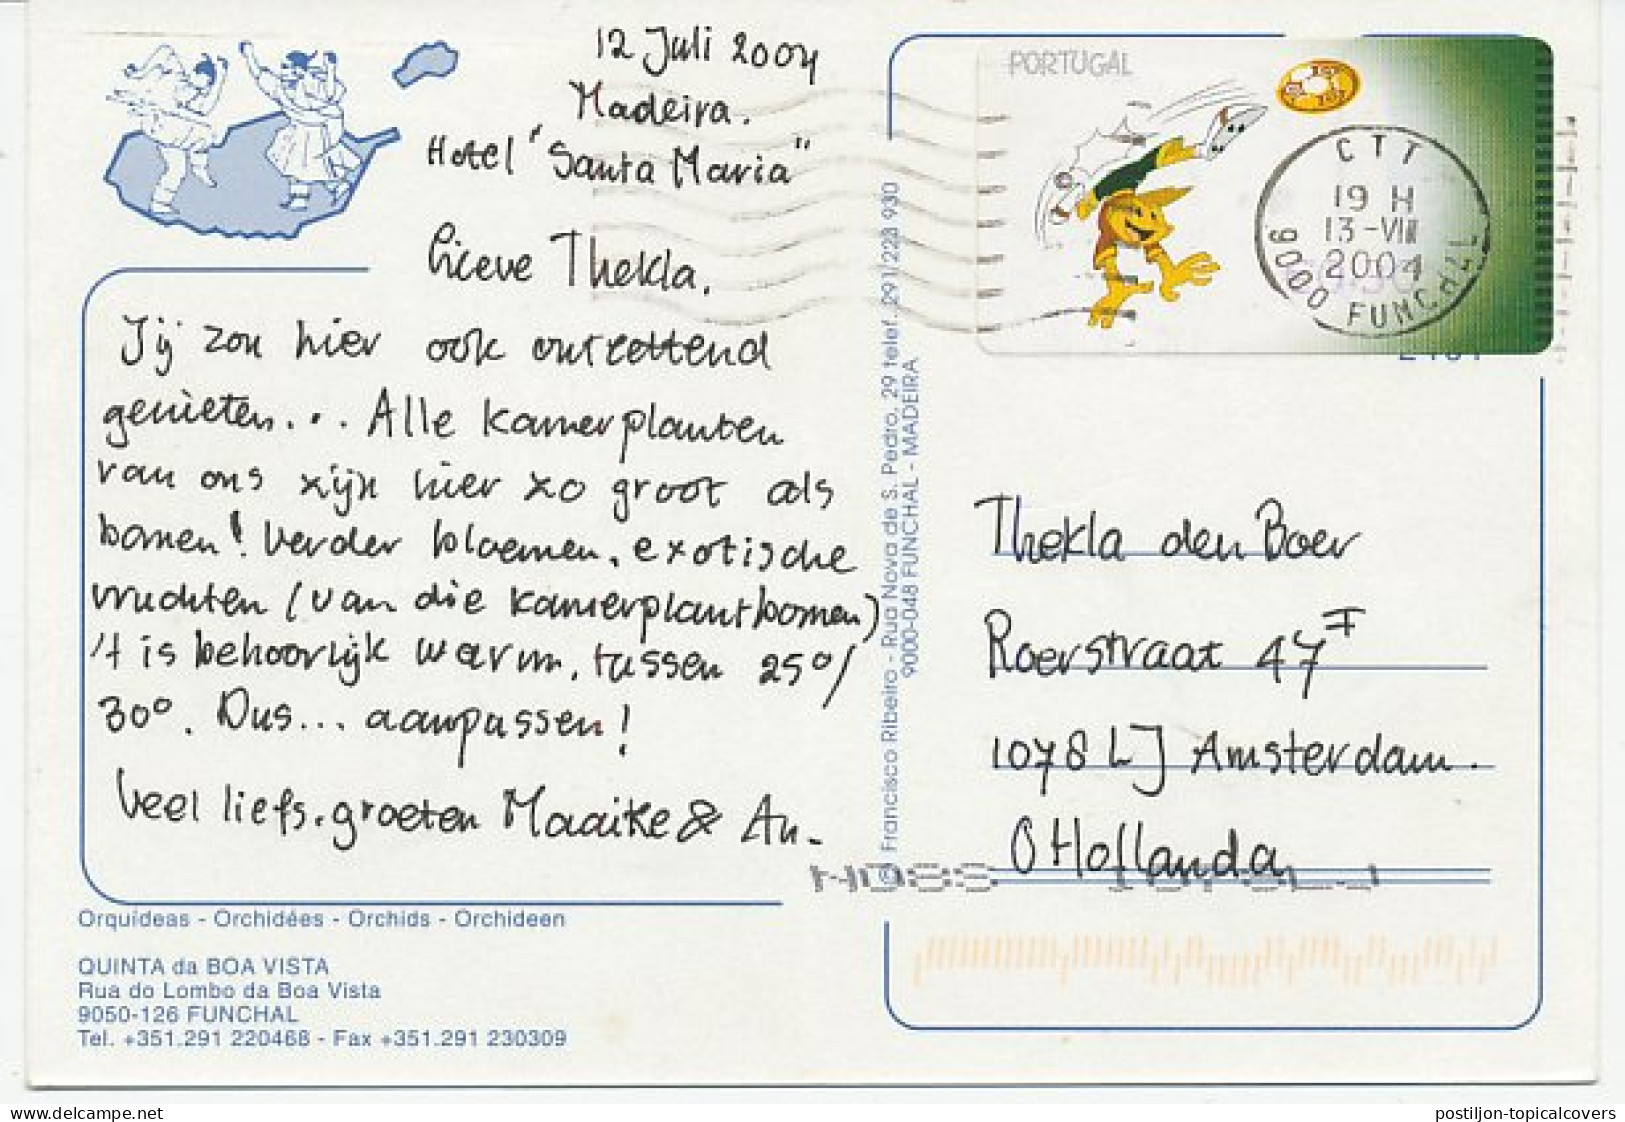 12 Juli 2004
Madeira.
Hotel "Santa Maria"
Lieve Thekla,
Jij zou hier ook ontzettend
genieten... Alle kamerplanten
van ons zijn hier zo groot als
bomen! Verder bloemen, exotische
vruchten (van die kamerplantbomen)
't is behoorlijk warm, tussen 25°/
30°. Dus... aanpassen!
Veel liefs, groeten Maaike & An.
Orquídeas - Orchidées - Orchids - Orchideen
QUINTA da BOA VISTA
Rua do Lombo da Boa Vista
9050-126 FUNCHAL
Tel. +351.291 220468 - Fax +351.291 230309
© Francisco Ribeiro - Rua Nova de S. Pedro, 29 telef. 291/223 930
9000-048 FUNCHAL - MADEIRA
PORTUGAL
CTT
19 H
13-VIII
2004
9000 FUNCHAL
Thekla den Boer
Roerstraat 47 I
1078 LJ Amsterdam.
O Hollanda
Delcampe.net
postiljon-topicalcovers